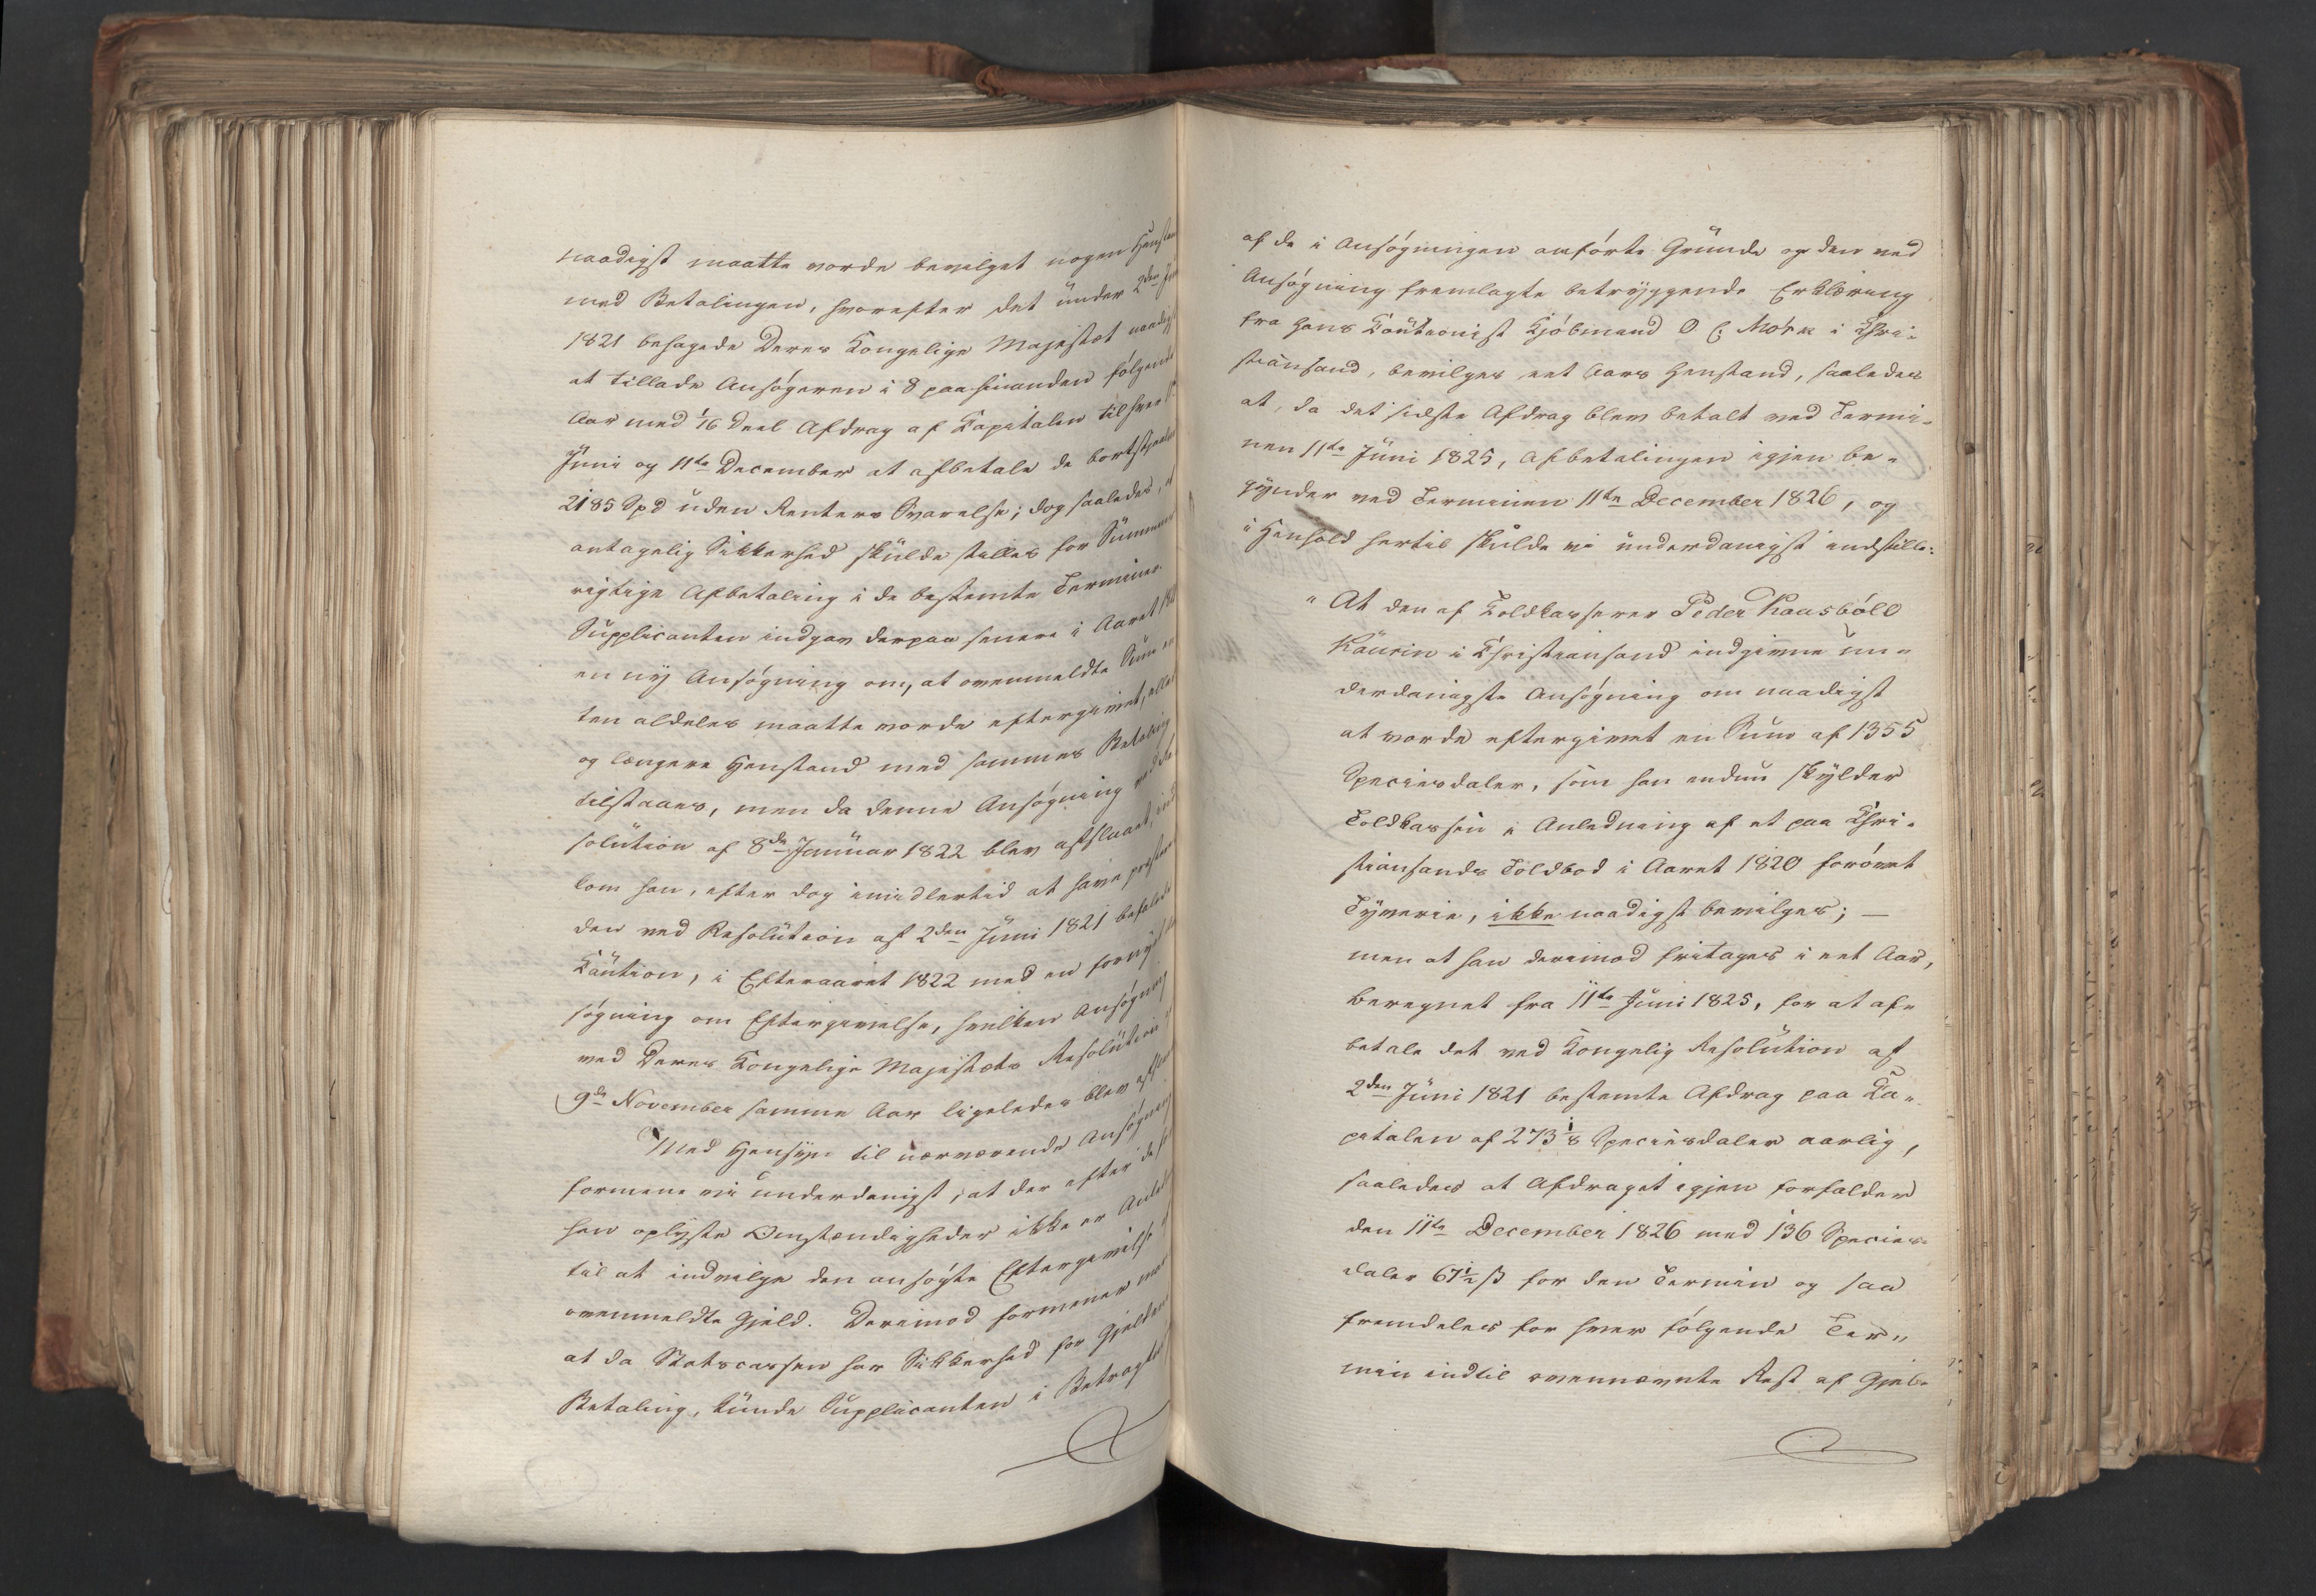 naadigst maatte vorde bevilget nogen Henstand
med Betalingen, hvorefter det under 2den Juni
1821 behagede Deres Kongelige Majestæt naadigst
at tillade Ansøgeren i 8 paa hinanden følgende
Aar med 1/16 Deel Afdrag af Kapitalen til hver
Juni og 11te December at afbetale de bortstjaalne
2185 Spd uden Renters Svarelse; dog saaledes, at
antagelig Sikkerhed skulde stilles for Summens
rigtige Afbetaling i de bestemte Terminer.
Supplicanten indgav derpaa senere i Aaret 1821
en ny Ansøgning om, at ovenmeldte Sum en
ten aldeles maatte vorde eftergivet, eller
og længere Henstand med sammes Betaling
tilstaaes, men da denne Ansøgning ved Re
solution af 8de Januar 1822 blev afslaaet, ind
kom han, efter dog imidlertid at have præsteret
den ved Resolution af 2den Juni 1821 befalede
Caution, i Efteraaret 1822 med en fornyet An
søgning om Eftergivelse, hvilken Ansøgning
ved Deres Kongelige Majestæts Resolution af
9de November samme Aar ligeledes blev afslaaet
Med Hensyn til nærværende Ansøgning
formene vi underdanigst, at der efter de
hen oplyste Omstændigheder ikke er Anledning
til at indvilge den ansøgte Eftergivelse af
ovenmeldte Gjeld. Derimod formener man
at da Statscassen har Sikkerhed for Gjeldens
Betaling, kunde Supplicanten i Betragtning
af de i Ansøgningen anførte Grunde og den ved
Ansøgning fremlagte betryggende Erklæring
fra hans Cautionist Kjøbmand O. C. Mørk i Chri-
stiansand, bevilges eet Aars Henstand, saaledes
at, da det sidste Afdrag blev betalt ved Termi-
nen 11te Juni 1825, Afbetalingen igjen be-
gynder ved Terminen 11te December 1826, og
i Henhold hertil skulde vi underdanigst indstille:
"At den af Toldkasserer Peder Kaasbøll
Kaurin i Christiansand indgivne un-
derdanigste Ansøgning om naadigst
at vorde eftergivet en Sum af 1355
Speciesdaler, som han endnu skylder
Toldkassen i Anledning af et paa Chri-
stiansands Toldbod i Aaret 1820 forøvet
Tyverie, ikke naadigst bevilges; —
men at han derimod fritages i eet Aar,
beregnet fra 11te Juni 1825, for at af-
betale det ved Kongelig Resolution af
2den Juni 1821 bestemte Afdrag paa Ca-
pitalen af 273 1/8 Speciesdaler aarlig,
saaledes at Afdraget igjen forfalder
den 11te December 1826 med 136 Species-
daler 67 1/2 ß for den Termin og saa
fremdeles for hver følgende Ter-
min indtil ovennævnte Rest af Gjel-